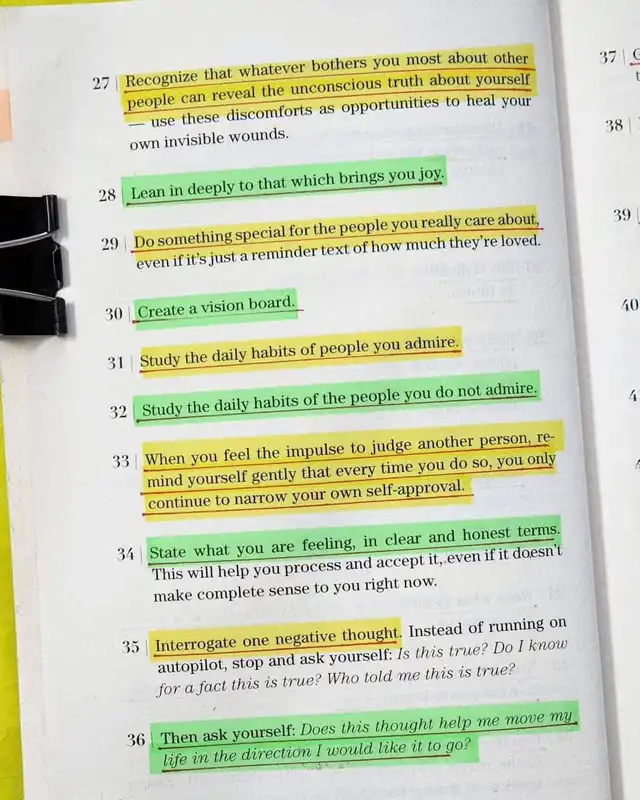 27 | Recognize that whatever bothers you most about other
people can reveal the unconscious truth about yourself
— use these discomforts as opportunities to heal your
own invisible wounds.
28 | Lean in deeply to that which brings you joy.
29 | Do something special for the people you really care about,
even if it's just a reminder text of how much they're loved.
30 | Create a vision board.
31 | Study the daily habits of people you admire.
32 | Study the daily habits of the people you do not admire.
33 | When you feel the impulse to judge another person, re-
mind yourself gently that every time you do so, you only
continue to narrow your own self-approval.
34 | State what you are feeling, in clear and honest terms.
This will help you process and accept it, even if it doesn't
make complete sense to you right now.
35 | Interrogate one negative thought. Instead of running on
autopilot, stop and ask yourself: Is this true? Do I know
for a fact this is true? Who told me this is true?
36 | Then ask yourself: Does this thought help me move my
life in the direction I would like it to go?
37 |
38 |
39 |
40